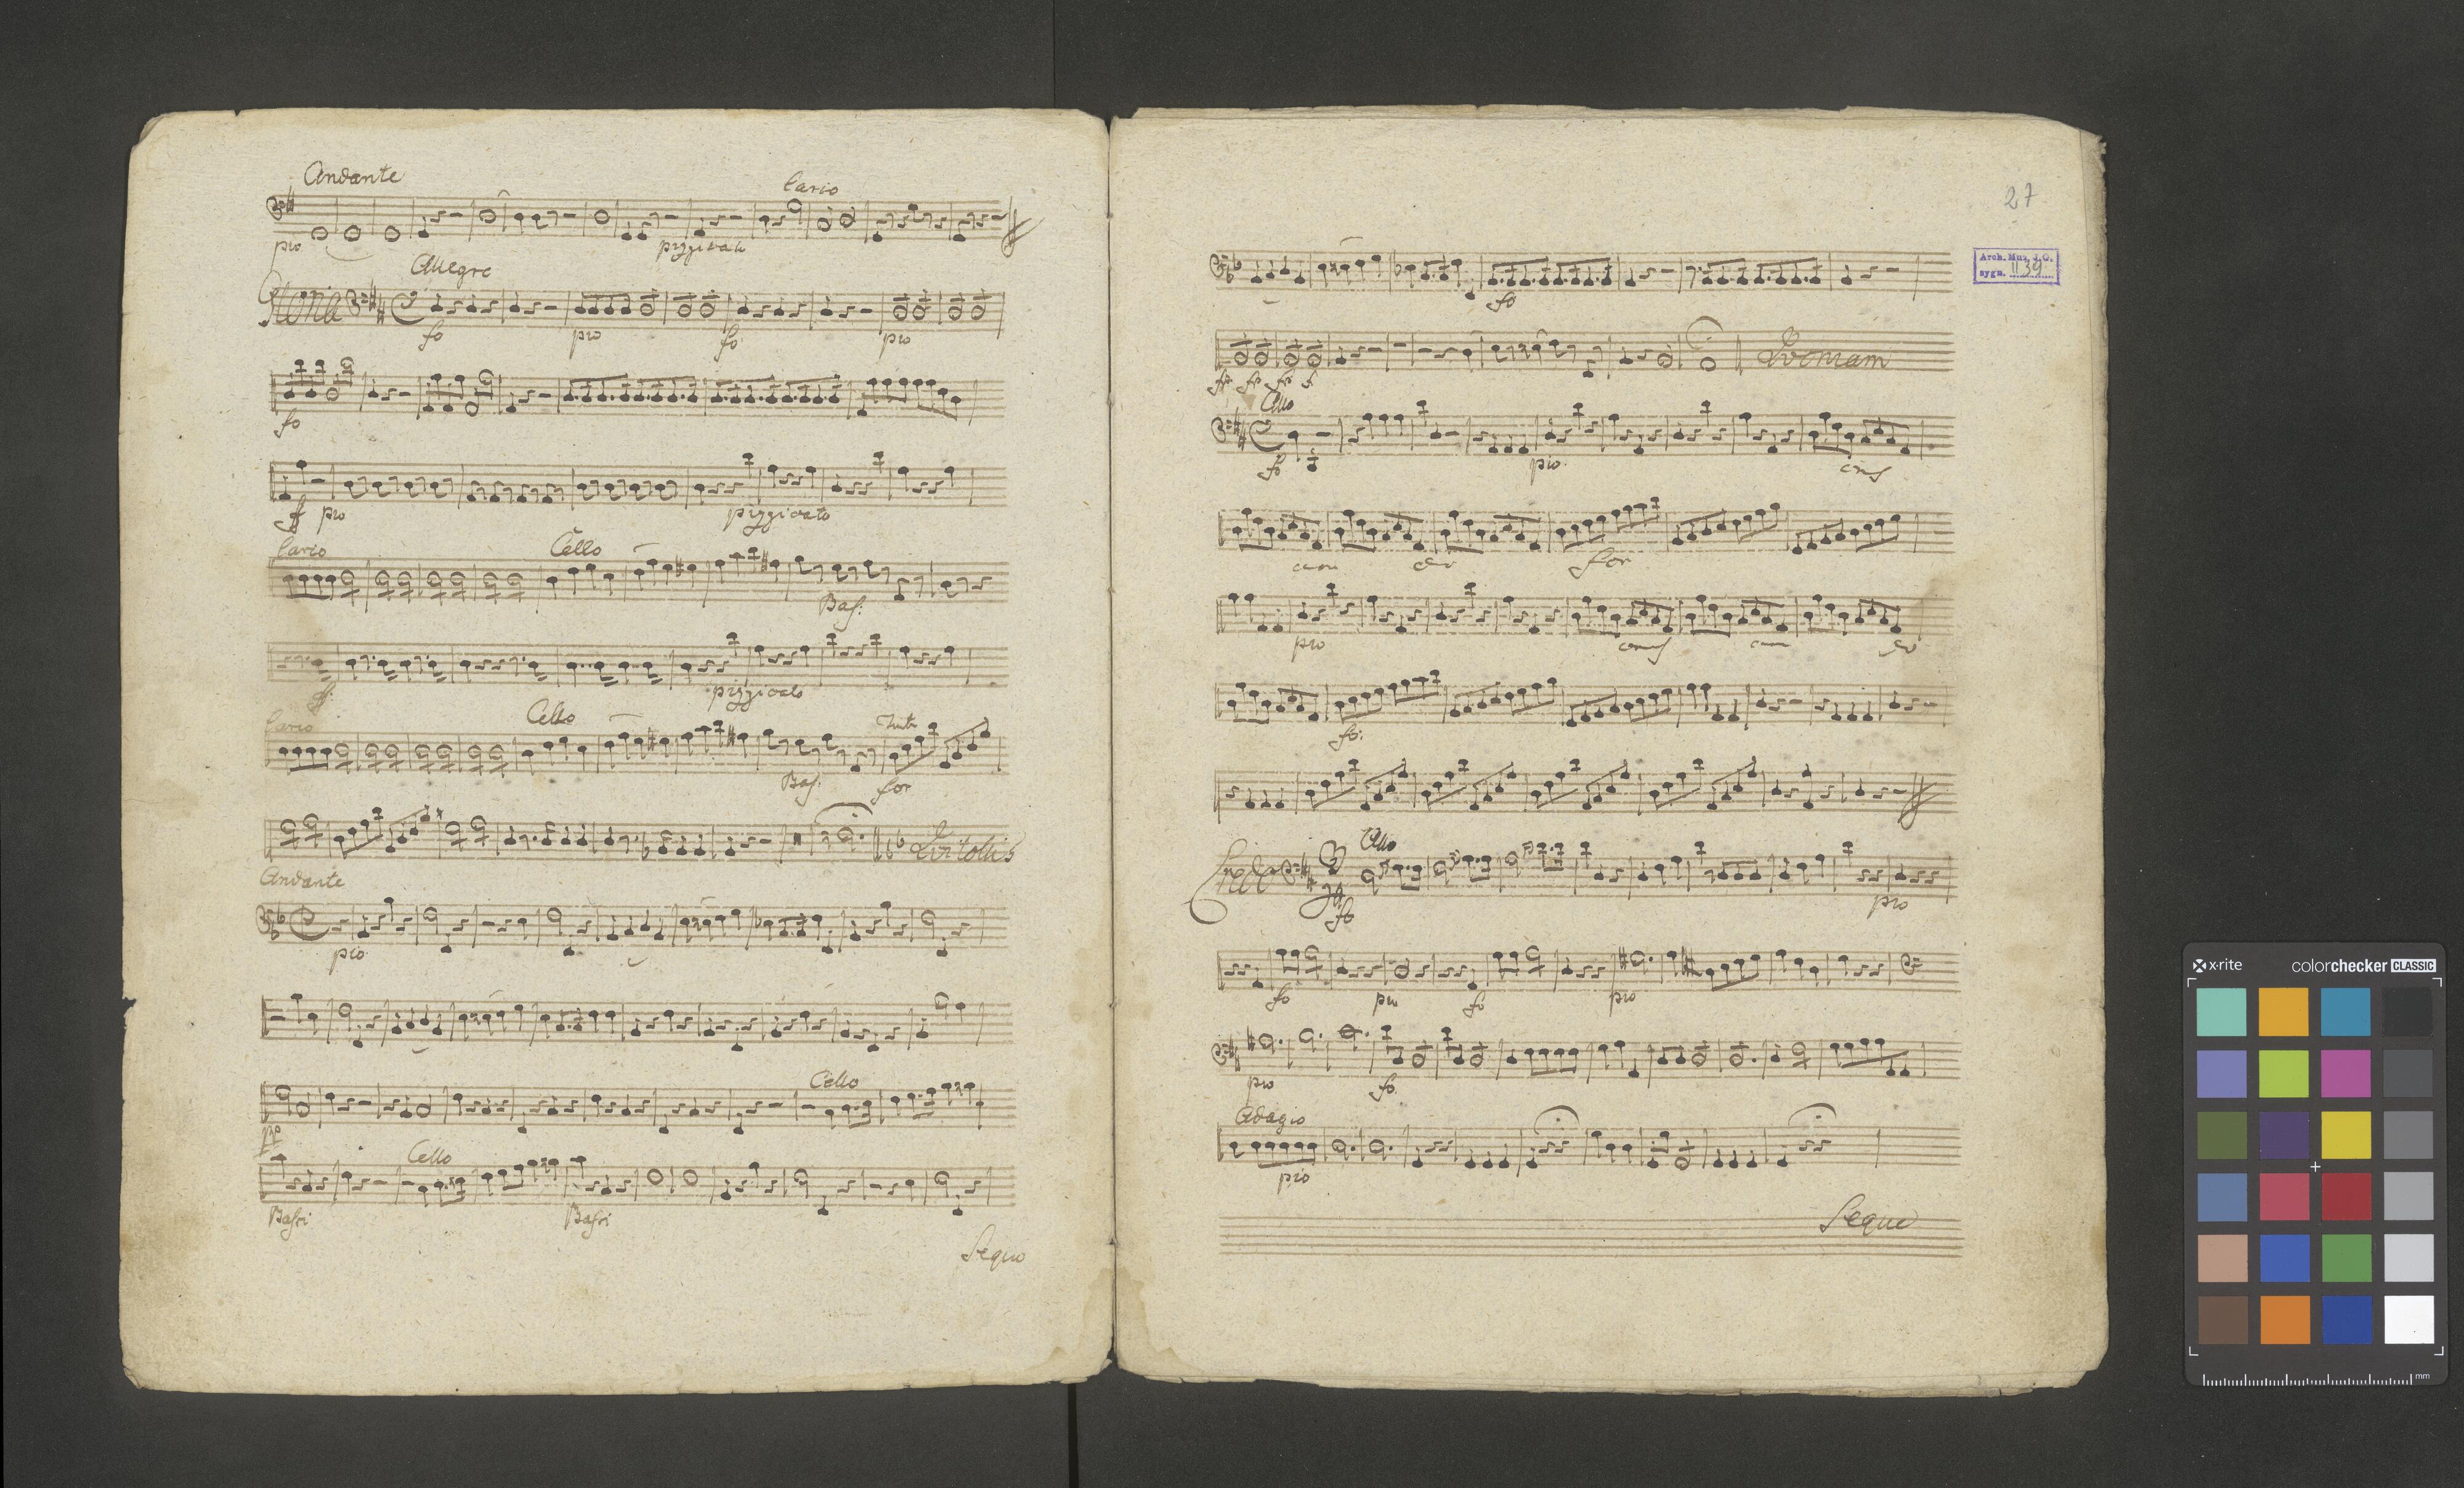 Andante
l'arco
pio
pizzicato
Allegro
Gloria
fo pio fo pio
fo
ff pio pizzicato
l'arco Cello
Bas:
ff: pizzicato
l'arco Cello Tutti
Bas: for
Qui tollis
Andante
pio
Cello
pp
Cello
Bassi Bassi
Sequo
27
Arch. Muz. J. G.
sygn. II 39
fo
Quoniam
fp fp fp f
Allo
fo pio. cres
cen do for
pio cres cen do
fo:
Credo Allo
3/4
fo pio
fo pio fo pio
pio fo
Adagio
pio
Seque
x-rite colorchecker CLASSIC
mm